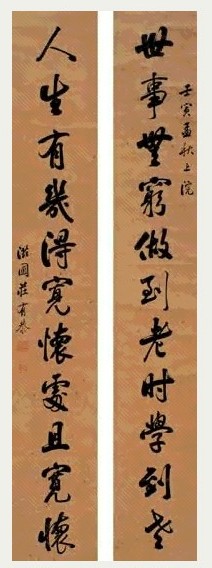 壬寅孟秋上浣
世事無窮做到老時學到老
人生有幾得寬懷處且寬懷
滋圃莊有恭